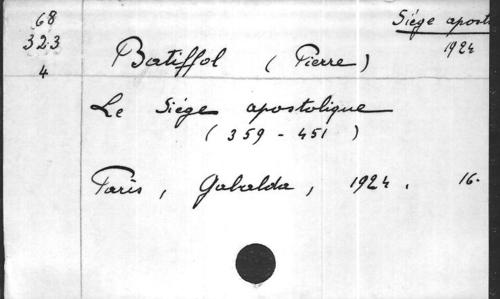 68
323
4
Siége apost
1924
Batiffol ( Pierre )
Le Siége apostolique
( 359 - 451 )
Paris , Gabalda , 1924 . 16.